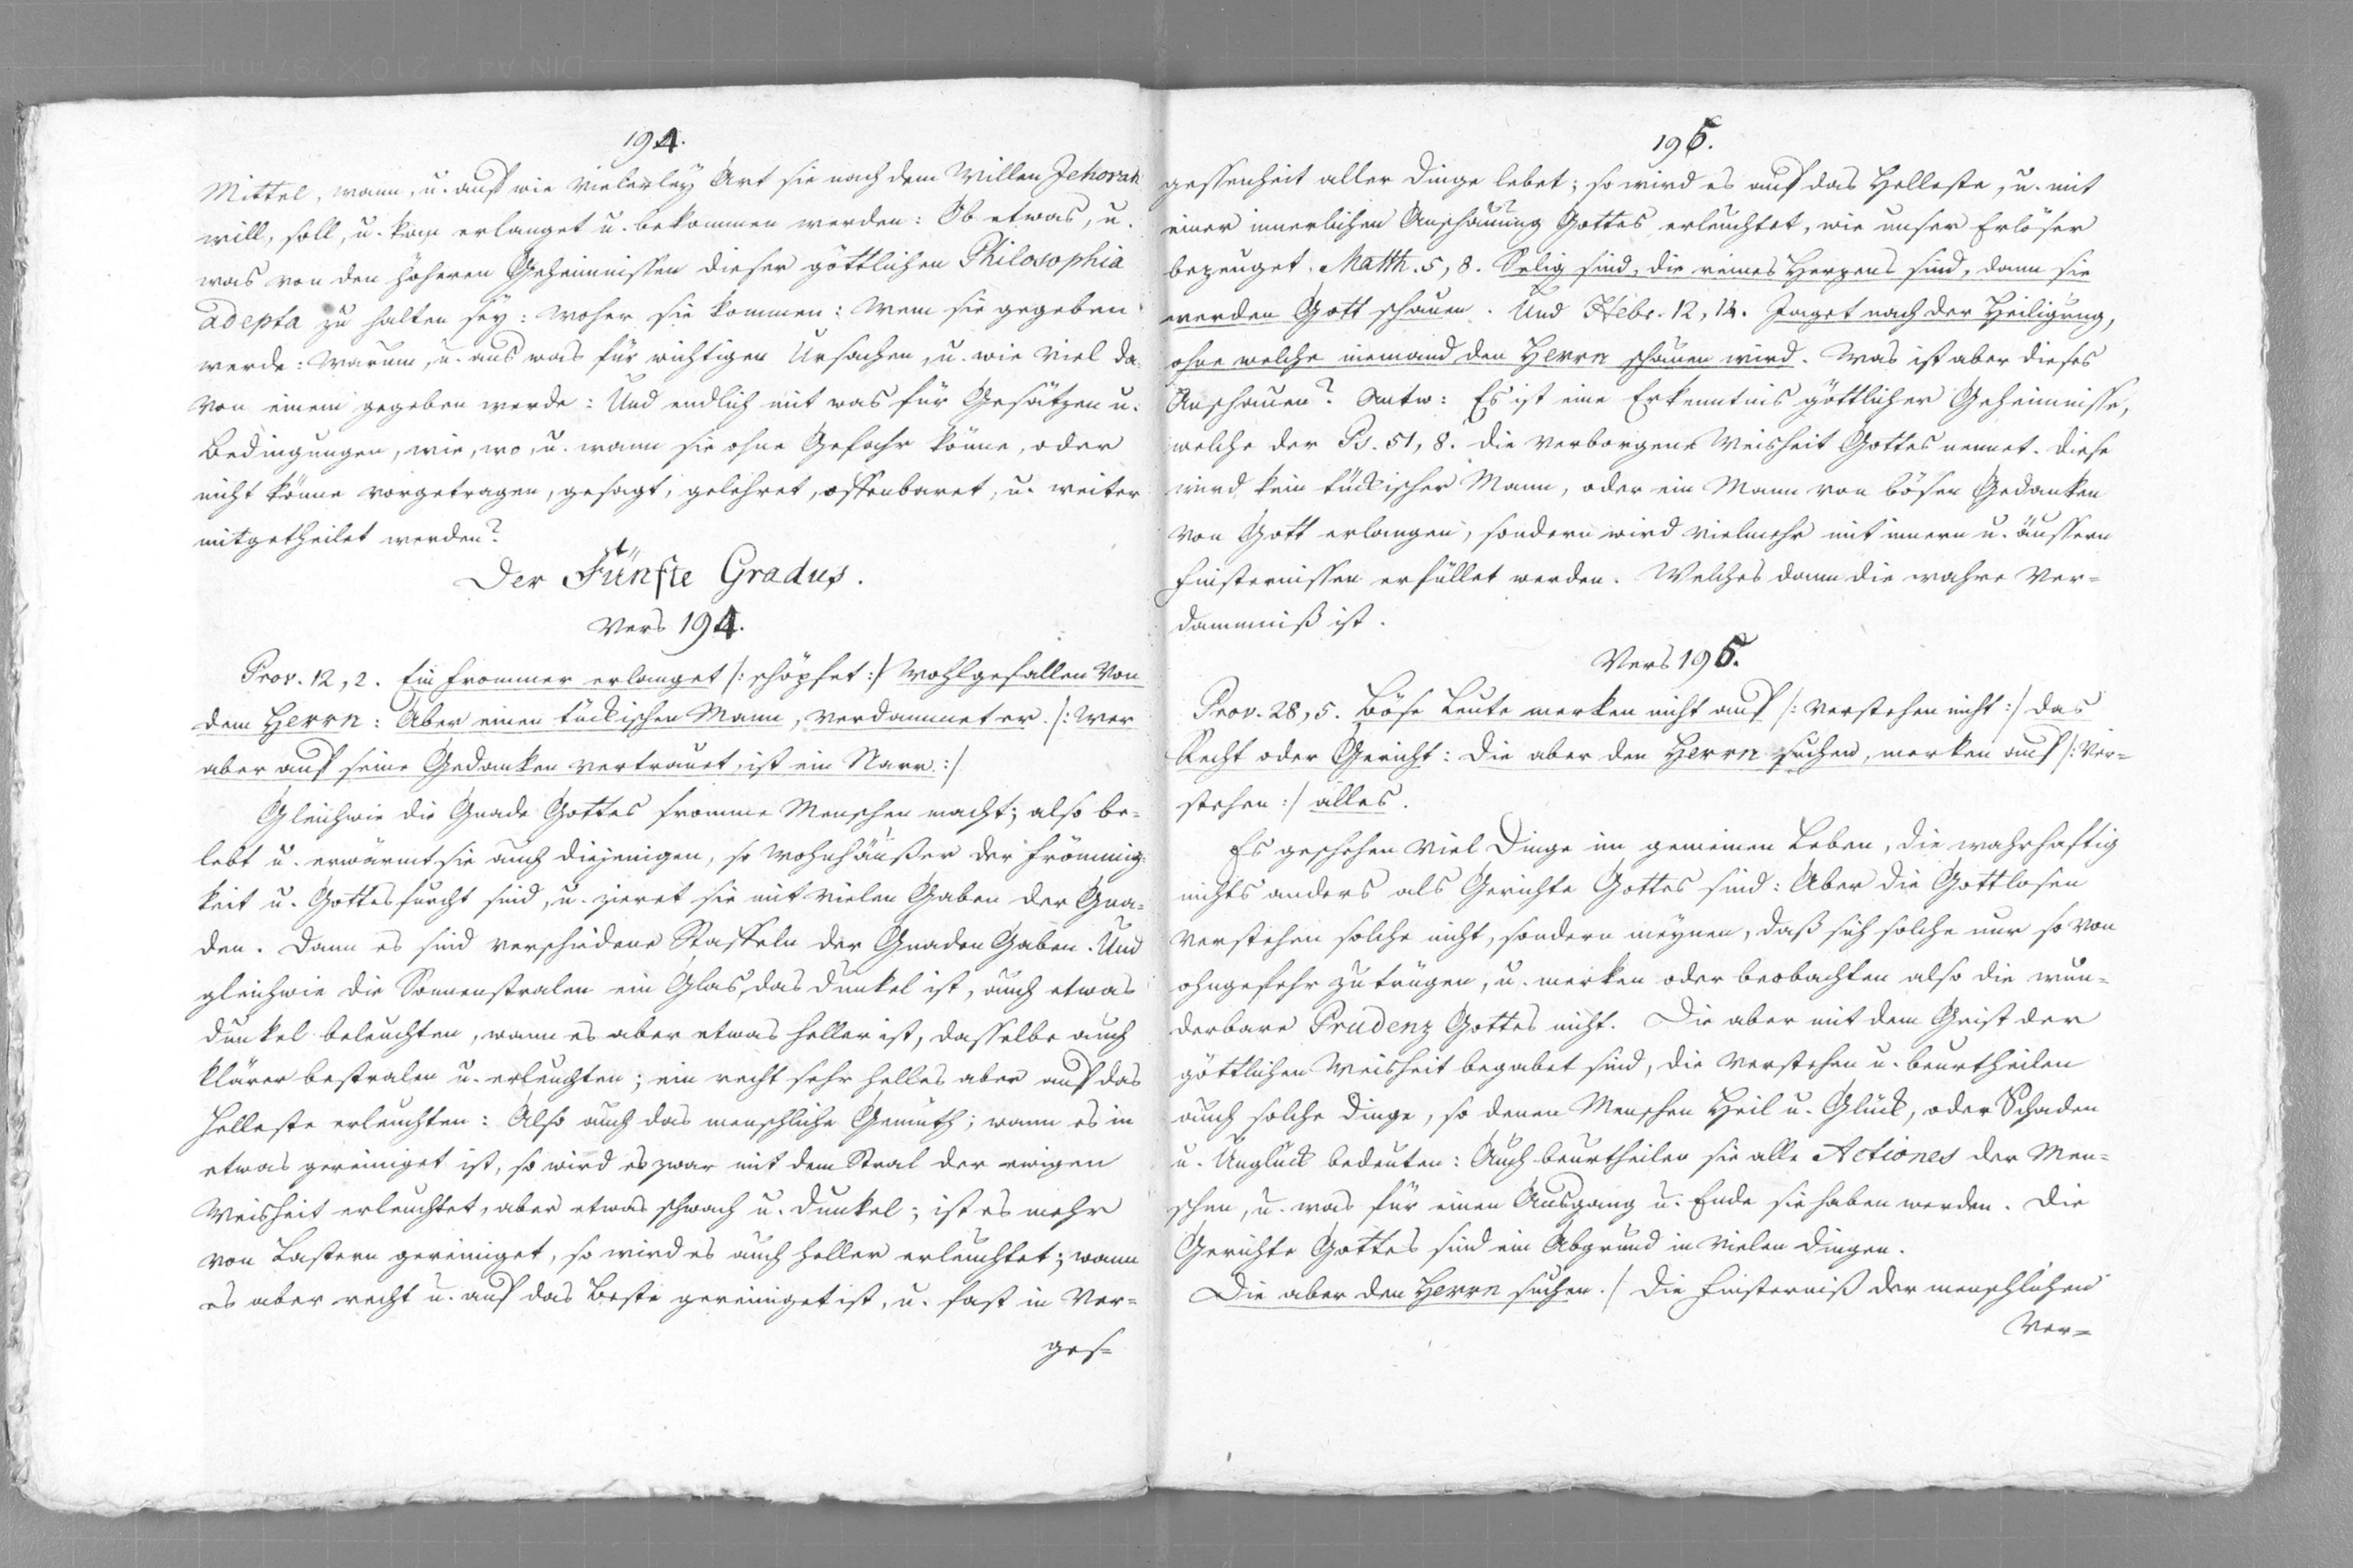 194.
Mittel, wann, u. auf wie vielerley Art sie nach dem Willen Jehovah
will, soll, u. kan erlanget u. bekommen werden: Ob etwas, u.
was von den höheren Geheimnissen dieser göttlichen Philosophia
adepta zu halten sey: woher sie kommen: wem sie gegeben
werde: warum, u. aus was für wichtigen Ursachen, u. wie viel da-
von einem gegeben werde: Und endlich mit was für Gesätzen u.
Bedingungen, wie, wo, u. wann sie ohne Gefahr könne, oder
nicht könne vorgetragen, gesagt, gelehret, offenbaret, u. weiter
mitgetheilet werden?
Der Fünfte Gradus.
Vers 194.
Prov. 12, 2. Ein Frommer erlanget /: schöpfet :/ Wohlgefallen von
dem Herrn: Aber einen tückischen Mann, verdammet er. /: Wer
aber auf seine Gedanken vertrauet, ist ein Narr. :/
Gleichwie die Gnade Gottes fromme Menschen macht; also be-
lebt u. erwärmt sie auch diejenigen, so Wohnhäußer der Frömmig-
keit u. Gottesfurcht sind, u. zieret sie mit vielen Gaben der Gna-
den. Dann es sind verschiedene Staffeln der Gnaden Gaben. Und
gleichwie die Sonnenstralen ein Glas, das dunkel ist, auch etwas
dunkel beleuchten, wann es aber etwas heller ist, dasselbe auch
klärer bestralen u. erleuchten; ein recht sehr helles aber auf das
Helleste erleuchten: Also auch das menschliche Gemüth; wann es in
etwas gereiniget ist, so wird es zwar mit dem Stral der ewigen
Weisheit erleuchtet, aber etwas schwach u. dunkel; ist es mehr
von Lastern gereiniget, so wird es auch heller erleuchtet; wann
es aber recht u. auf das Beste gereiniget ist, u. fast in Ver-
ges-
195.
gessenheit aller Dinge lebet; so wird es auf das Helleste, u. mit
einer innerlichen Anschauung Gottes erleuchtet, wie unser Erlöser
bezeuget. Matth. 5, 8. Selig sind, die reines Herzens sind, dann sie
werden Gott schauen. Und Hebr. 12, 14. Jaget nach der Heiligung,
ohne welche niemand den Herrn schauen wird. Was ist aber dieses
Anschauen? Antw: Es ist eine Erkenntnis göttlicher Geheimnisse,
welche der Ps. 51, 8. die verborgene Weisheit Gottes nennet. Diese
wird kein tückischer Mann, oder ein Mann von bösen Gedanken
von Gott erlangen, sondern wird vielmehr mit innern u. äussern
Finsternissen erfüllet werden. Welches dann die wahre Ver-
dammniß ist.
Vers 195.
Prov. 28, 5. Böse Leute merken nicht auf /: verstehen nicht :/ das
Recht oder Gericht: Die aber den Herrn suchen, merken auf /: ver-
stehen :/ alles.
Es geschehen viel Dinge im gemeinen Leben, die wahrhaftig
nichts anders als Gerichte Gottes sind: Aber die Gottlosen
verstehen solche nicht, sondern meynen, daß sich solche nur so von
ohngefehr zutrügen, u. merken oder beobachten also die wun-
derbare Prudenz Gottes nicht. Die aber mit dem Geist der
göttlichen Weisheit begabet sind, die verstehen u. beurtheilen
auch solche Dinge, so denen Menschen Heil u. Glück, oder Schaden
u. Unglück bedeuten: Auch beurtheilen sie alle Actiones der Men-
schen, u. was für einen Ausgang u. Ende sie haben werden. Die
Gerichte Gottes sind ein Abgrund in vielen Dingen.
Die aber den Herrn suchen. / Die Finsterniß der menschlichen
Ver-